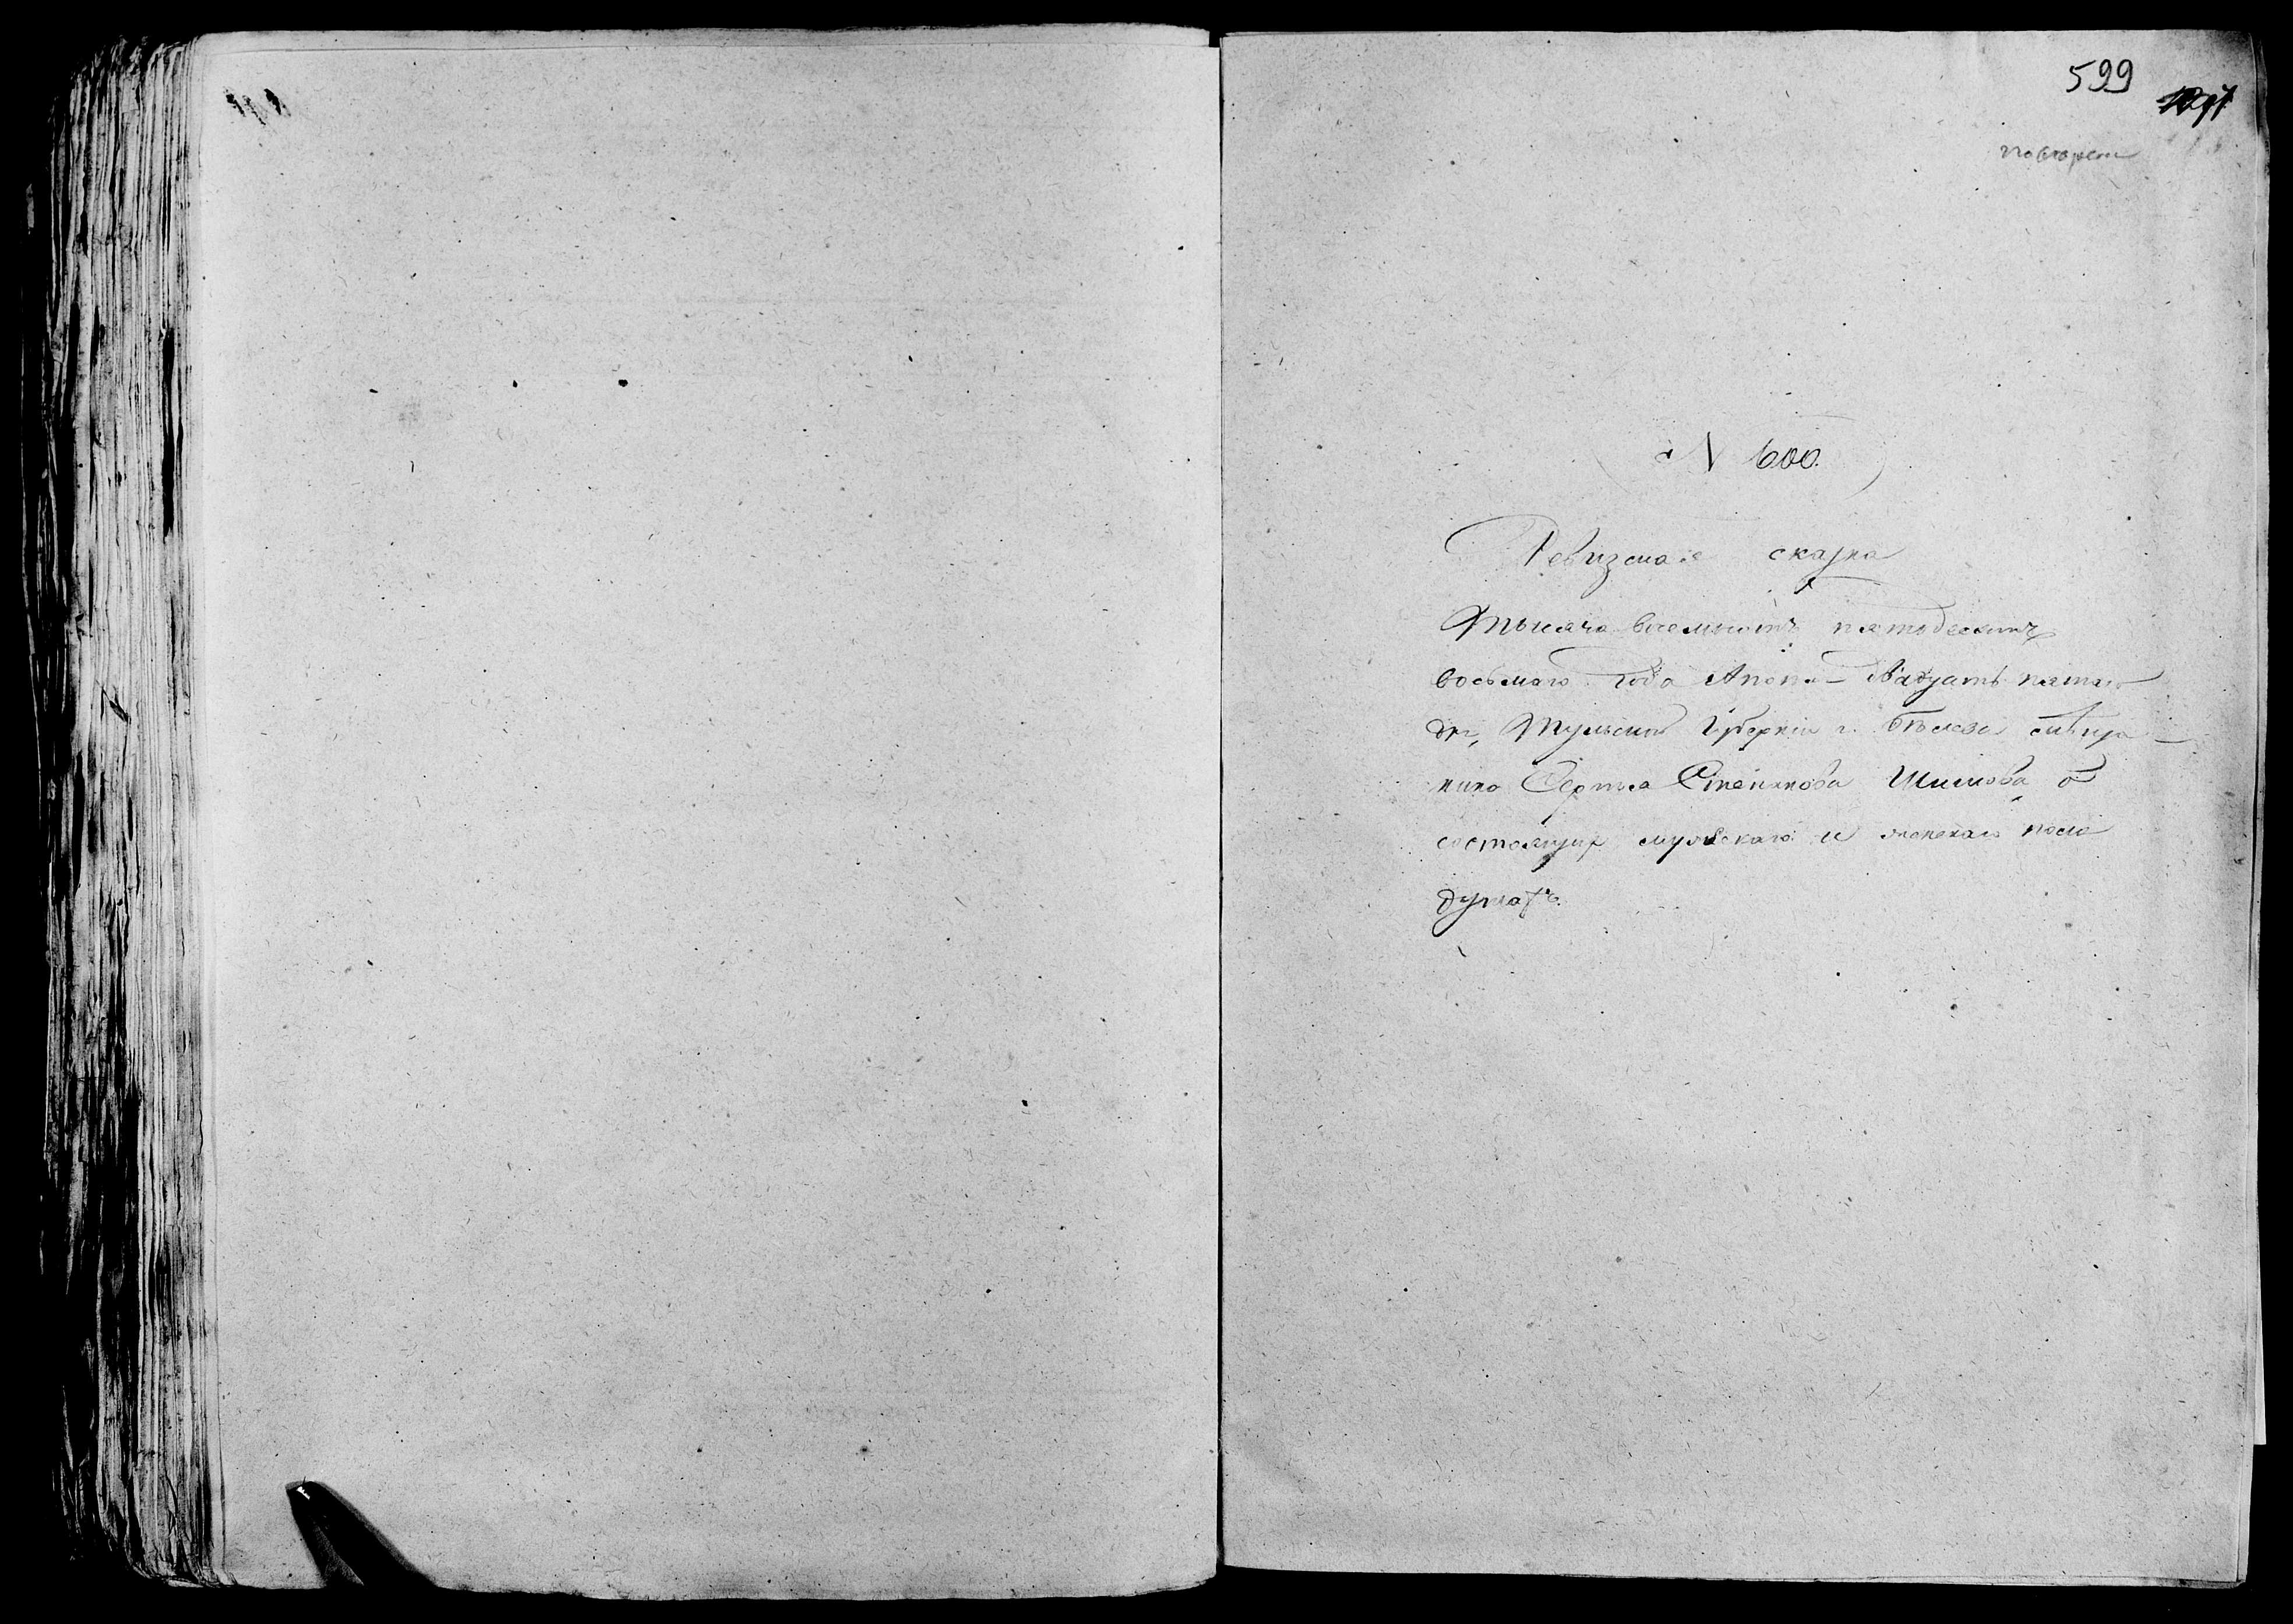 599
повторен
N 600.
Ревизская сказка
Тысяча восемьсотъ пятьдесятъ
восьмаго года Апреля двадцать пятаго
дня, Тульской Губерніи г. Бѣлева мѣща-
нина Сергѣя Степанова Шилова о
состоящихъ мужескаго и женскаго пола
душахъ.